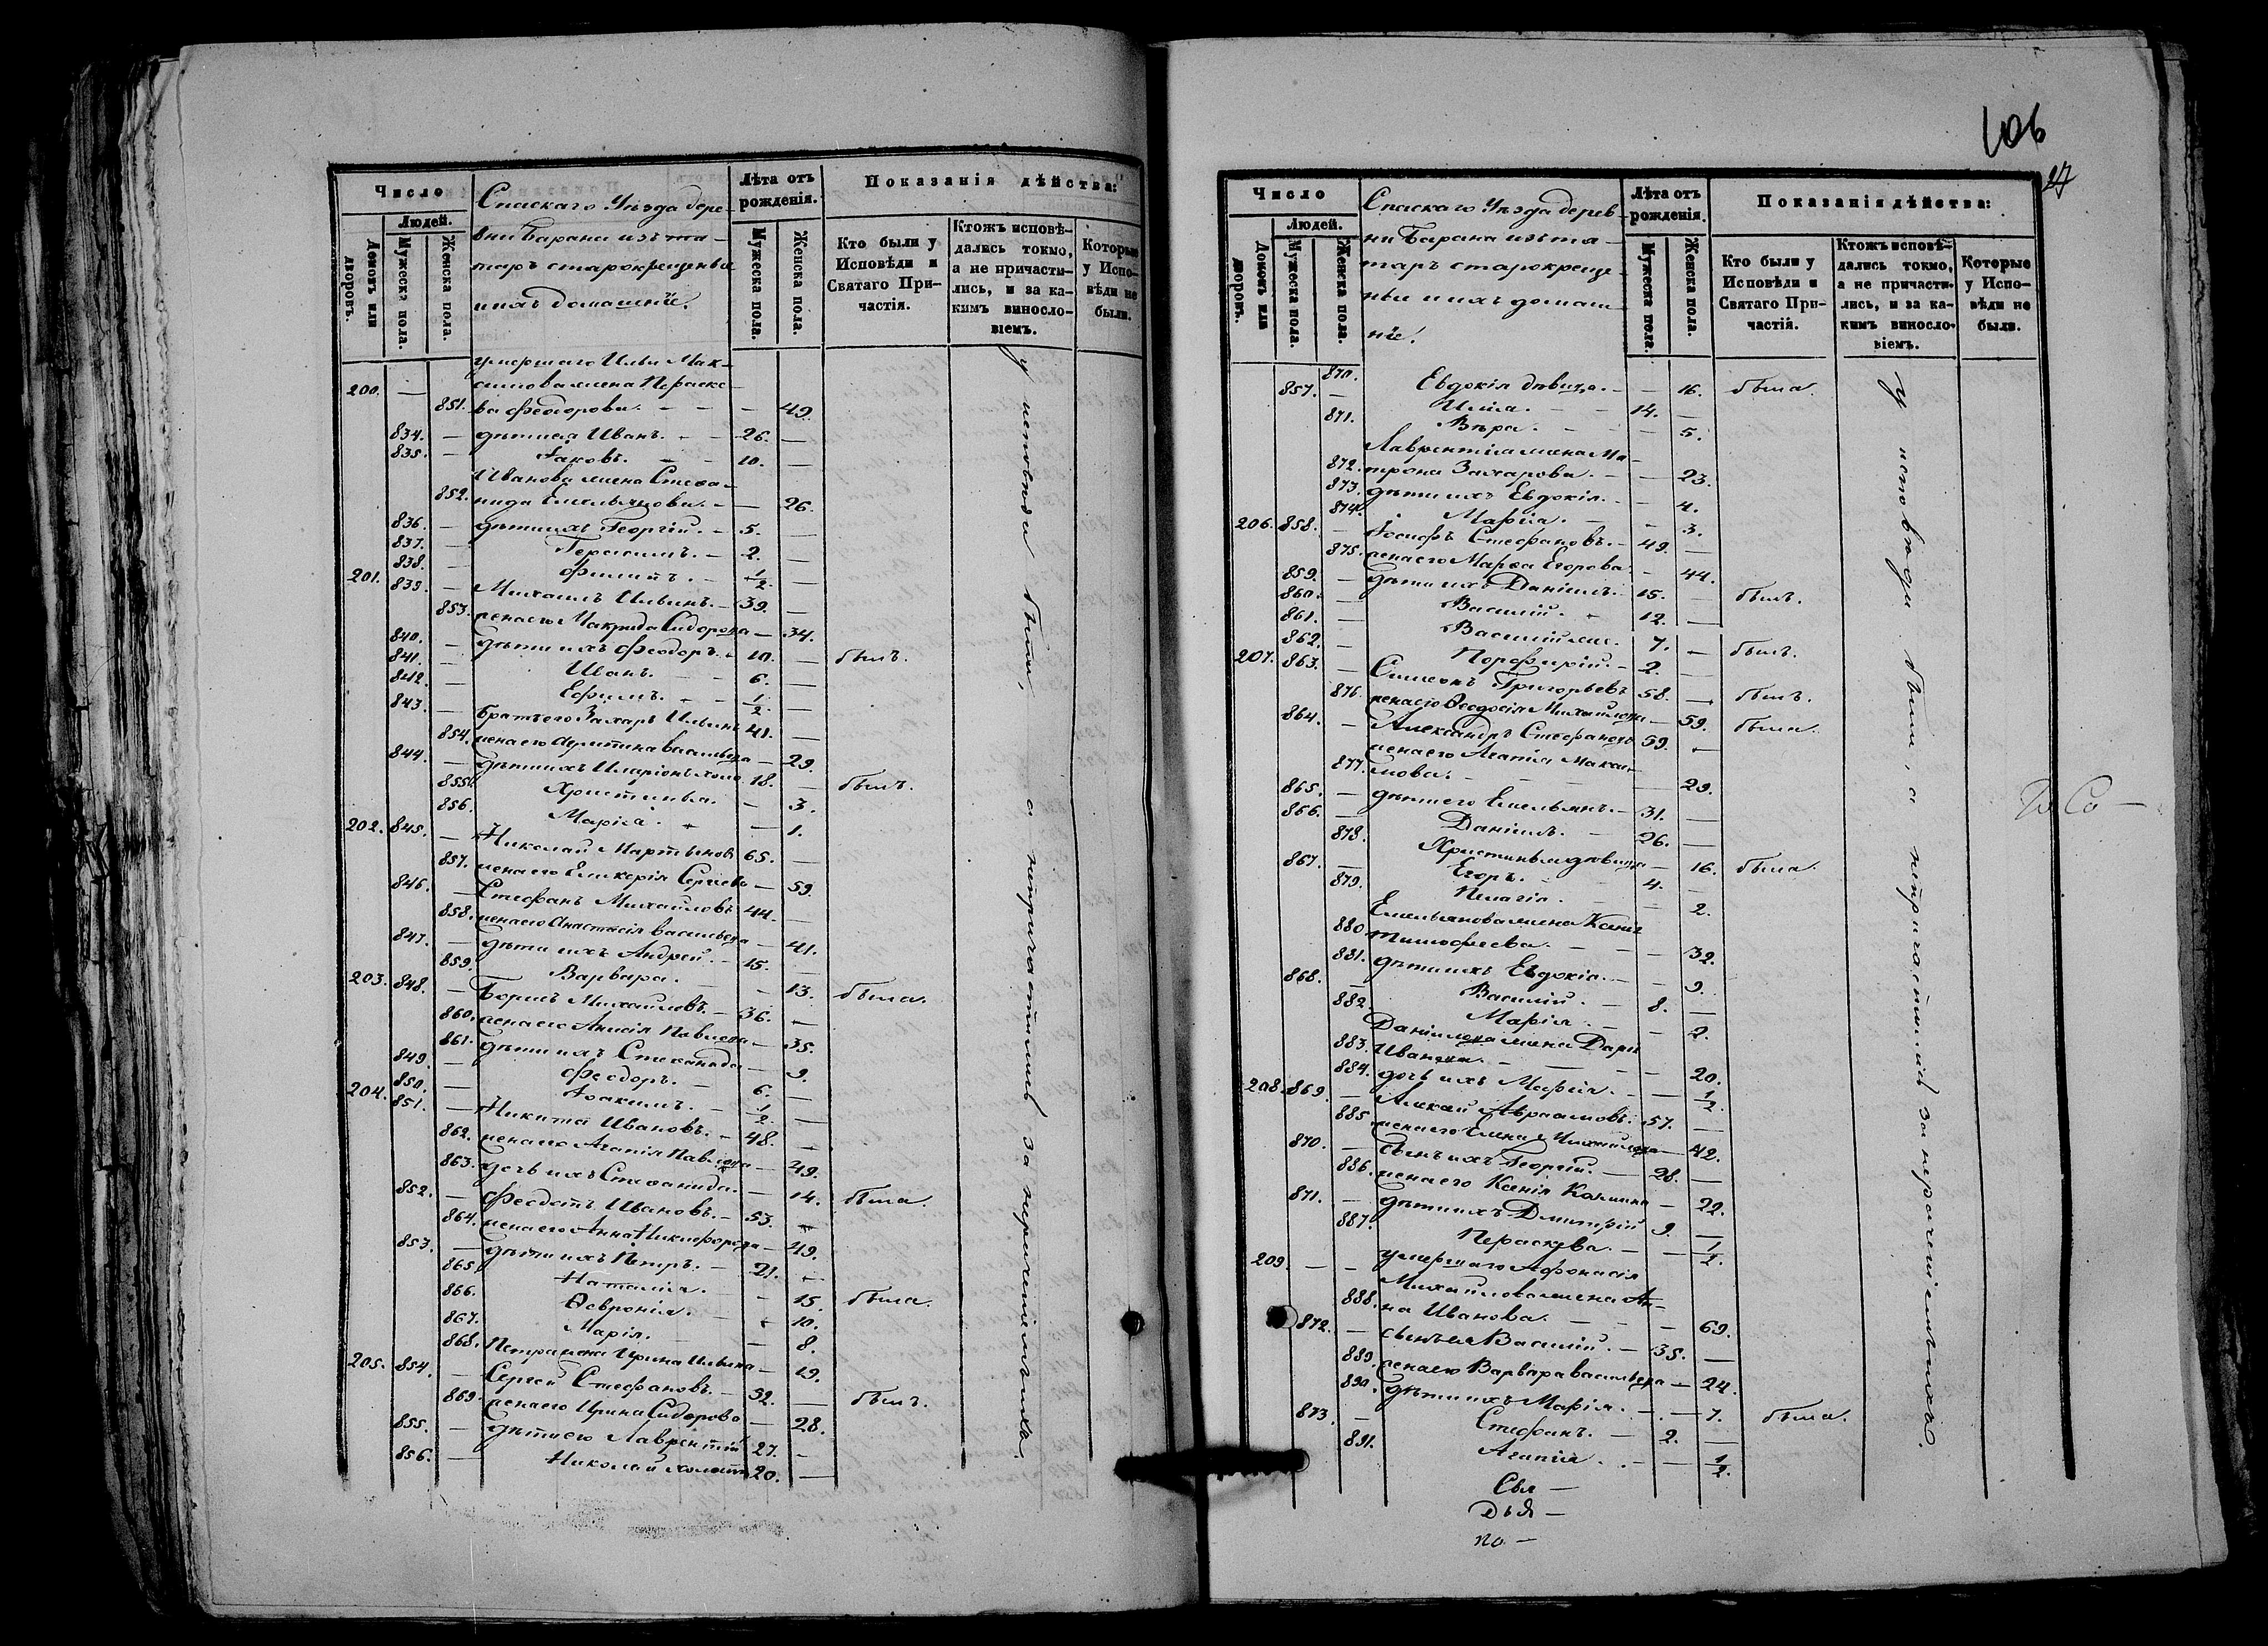 106
27
Число
Людей.
Домовъ или дворовъ.
Мужеска пола.
Женска пола.
Спаскаго Уѣзда дере-
вни Барана изъ та-
таръ старокрещеные
и ихъ домашніе.
Лѣта отъ рожденія.
Мужеска пола.
Женска пола.
Показанія дѣйства:
Кто были у Исповѣди и Святаго При-частія.
Ктожъ исповѣ-дались токмо, а не причасти-лись, и за ка-кимъ винословіемъ.
Которые у Испо-вѣди не были.
умершаго Ильи Мак-
200. — симова жена Параске-
851. ва Феодорова. — — 49.
834. — дѣти ея Иванъ. — 26. —
835. — Іаковъ. — 10. —
Иванова жена Стефа-
852. нида Емельянова. — — 26.
836. — дѣти ихъ Георгій. — 5. —
837. — Герасимъ. — 2. —
838. — Филипъ. — 1/2 —
201. 839. — Михаилъ Ильинъ. — 39. —
853. жена его Макрида Сидорова — 34.
840. — дѣти ихъ Феодоръ. 10. — былъ.
841. — Иванъ. — 6. —
842. — Ефимъ. — 1/2 —
843. — братъ его Захаръ Ильинъ 41. —
854. жена его Акулина Васильева — 29.
844. — дѣти ихъ Иларіонъ холо. 18. — былъ.
855. Христинья. — 3.
856. Марія. — 1.
202. 845. — Николай Мартыновъ 65. —
857. жена его Гликерія Сергѣева — 59.
846. — Стефанъ Михайловъ 44. —
858. жена его Анастасія Васильева — 41.
847. — дѣти ихъ Андрей. — 15. —
859. Варвара. — 13. была.
203. 848. — Борисъ Михайловъ. — 36. —
860. жена его Анисія Павлова — 35.
861. дѣти ихъ Стефанида — 9.
849. — Феодоръ. — 6. —
850. — Іоакимъ. — 1/2 —
204. 851. — Никита Ивановъ. — 48. —
862. жена его Агапія Павлова — 49.
863. дочь ихъ Стефанида. — 14. была.
852. — Феодотъ Ивановъ. — 53. —
864. жена его Анна Никифорова — 49.
853. — дѣти ихъ Петръ. — 21. —
865. Наталія. — 15. была.
866. Ѳевронія. — 10.
867. Марія. — 8.
868. Петра жена Ирина Ильина — 19.
205. 854. — Сергей Стефановъ. — 52. — былъ.
869. жена его Ирина Сидорова — 28.
855. — дѣти его Лаврентій 27. —
856. — Николай холост. 20. —
у исповѣди были, а непричастились за нерачительствомъ.
Число
Людей.
Домовъ или дворовъ.
Мужеска пола.
Женска пола.
Спаскаго Уѣзда дерев-
ни Барана изъ та-
таръ старокреще-
ные и ихъ домаш-
ніе.
Лѣта отъ рожденія.
Мужеска пола.
Женска пола.
Показанія дѣйства:
Кто были у Исповѣди и Святаго При-частія.
Ктожъ исповѣ-дались токмо, а не причасти-лись, и за ка-кимъ винословіемъ.
Которые у Испо-вѣди не были.
870. Евдокія дѣвица. — — 16. была.
857. — Илія. — 14. —
871. Вѣра. — — 5.
Лаврентія жена Ма-
872. трона Захарова. — — 23.
873. дѣти ихъ Евдокія. — — 4.
874. Марія. — — 3.
206. 858. — Іосифъ Стефановъ. — 49. —
875. жена его Марѳа Егорова — 44.
859. — дѣти ихъ Даніилъ. 15. — былъ.
860. — Василій. — 12. —
861. — Василій 7. — былъ.
862. — Порфирій. — 2. —
207. 863. — Симеонъ Григорьевъ 58. — былъ.
876. жена его Ѳеодосія Михайлова — 59. была.
864. — Александръ Стефановъ 59. —
жена его Агапія Макси-
877. мова. — — 29.
865. — дѣти его Емельянъ. — 31. —
866. — Даніилъ. — 26. —
878. Христинья дѣвица — 16. была.
867. — Егоръ. — 4. —
879. Пелагія. — — 2.
Емельянова жена Ксенія
880. Тимофеева. — — 32.
881. дѣти ихъ Евдокія. — — 9.
868. — Василій. — 8. —
882. Марія. — — 2.
Даніилова жена Дарья
883. Иванова. — — 20.
884. дочь ихъ Марія. — — 1/2
208. 869. — Алексій Авраамовъ. 57. —
885. жена его Елена Михайлова — 42.
870. — сынъ ихъ Георгій. — 28. —
886. жена его Ксенія Козмина — 22.
871. — дѣти ихъ Дмитрій 9. —
887. Параскева. — — 1/2.
209. — — умершаго Афонасія
Михайлова жена Ан-
888. на Иванова. — — 69.
872. — сынъ ея Василій. — 35. —
889. жена его Варвара Васильева — 24.
890. дѣти ихъ Марія. — — 7. была.
873. — Стефанъ. — 2. —
891. Агапія. — — 1/2.
у исповѣди были, а непричастились за нерачительствомъ.
По Со —
Свя —
Дѣй —
по —